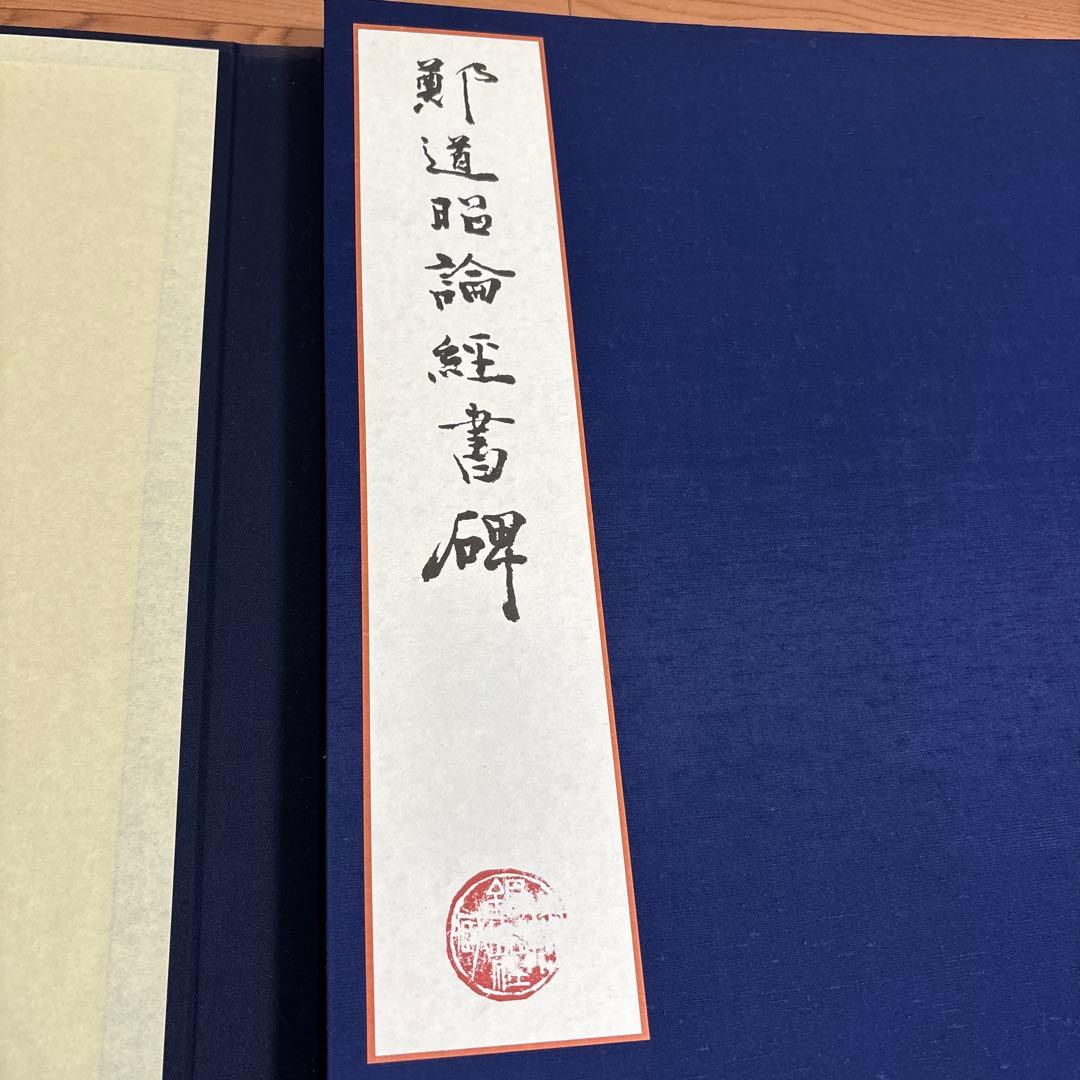 鄭道昭論經書碑